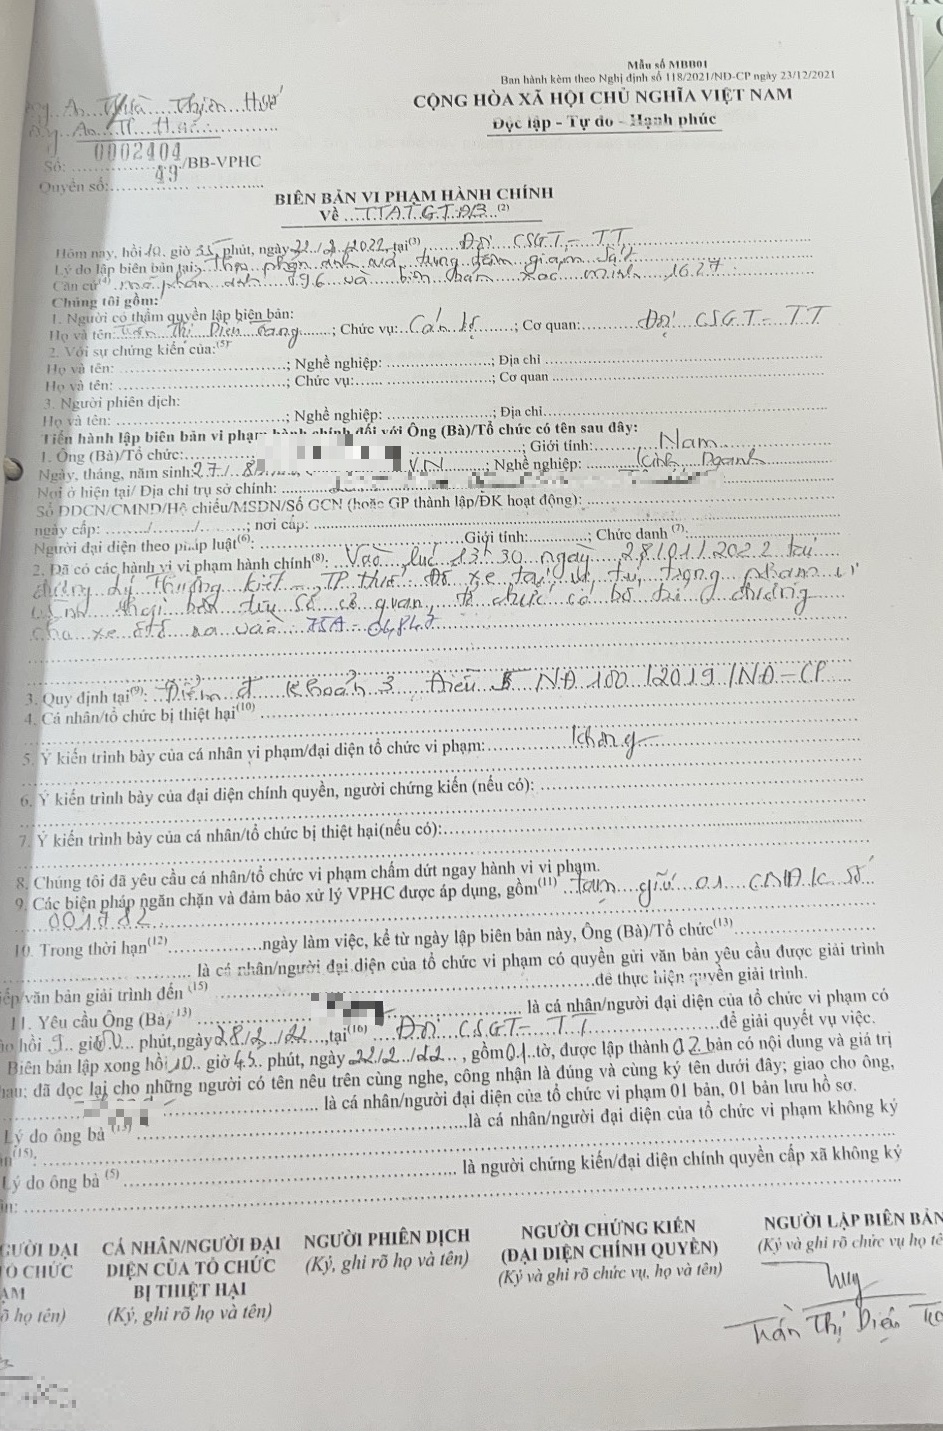 Mẫu số MBB01
Ban hành kèm theo Nghị định số 118/2021/NĐ-CP ngày 23/12/2021
CỘNG HÒA XÃ HỘI CHỦ NGHĨA VIỆT NAM
Độc lập - Tự do - Hạnh phúc
An Thừa Thiên Huế
An TP Huế
Số: 0002404/BB-VPHC
Quyển số: 49
BIÊN BẢN VI PHẠM HÀNH CHÍNH
Về TTATGTĐB (2)
Hôm nay, hồi 10 giờ 35 phút, ngày 22/2/2022, tại(3) Đội CSGT-TT
Lý do lập biên bản tại: Theo phản ánh của trung tâm giám sát
Căn cứ(4) mã phản ánh 596 và biên bản xác minh 1627
Chúng tôi gồm:
1. Người có thẩm quyền lập biên bản:
Họ và tên: Trần Thị Diệu Trang; Chức vụ: Cán bộ; Cơ quan: Đội CSGT-TT
2. Với sự chứng kiến của:(5)
Họ và tên: ; Nghề nghiệp: ; Địa chỉ
Họ và tên: ; Chức vụ: ; Cơ quan
3. Người phiên dịch:
Họ và tên: ; Nghề nghiệp: ; Địa chỉ
Tiến hành lập biên bản vi phạm hành chính đối với Ông (Bà)/Tổ chức có tên sau đây:
1. Ông (Bà)/Tổ chức: ; Giới tính: Nam
Ngày, tháng, năm sinh 27/8 VN; Nghề nghiệp: Kinh Doanh
Nơi ở hiện tại/ Địa chỉ trụ sở chính:
Số ĐDCN/CMND/Hộ chiếu/MSDN/Số GCN (hoặc GP thành lập/ĐK hoạt động):
ngày cấp: / / ; nơi cấp:
Người đại diện theo pháp luật(6): Giới tính: ; Chức danh (7):
2. Đã có các hành vi vi phạm hành chính(8): Vào lúc 13h30 ngày 28/01/2022 tại
đường Lý Thường Kiệt - TP Huế. Đỗ xe tại vị trí trong phạm vi
trụ sở cơ quan, tổ chức có bố trí đường
cho xe ôtô ra vào. 75A-04847
3. Quy định tại(9): Điểm đ Khoản 3 Điều 5 NĐ 100/2019/NĐ-CP
4. Cá nhân/tổ chức bị thiệt hại(10)
5. Ý kiến trình bày của cá nhân vi phạm/đại diện tổ chức vi phạm: không
6. Ý kiến trình bày của đại diện chính quyền, người chứng kiến (nếu có):
7. Ý kiến trình bày của cá nhân/tổ chức bị thiệt hại(nếu có):
8. Chúng tôi đã yêu cầu cá nhân/tổ chức vi phạm chấm dứt ngay hành vi vi phạm.
9. Các biện pháp ngăn chặn và đảm bảo xử lý VPHC được áp dụng, gồm(11) tạm giữ 01 CNĐK số
001782
10. Trong thời hạn(12) ngày làm việc, kể từ ngày lập biên bản này, Ông (Bà)/Tổ chức(13)
là cá nhân/người đại diện của tổ chức vi phạm có quyền gửi văn bản yêu cầu được giải trình
văn bản giải trình đến (15) để thực hiện quyền giải trình.
11. Yêu cầu Ông (Bà) (13) là cá nhân/người đại diện của tổ chức vi phạm có
hồi 9 giờ 00 phút, ngày 28/2/22, tại(16) Đội CSGT-TT để giải quyết vụ việc.
Biên bản lập xong hồi 10 giờ 45 phút, ngày 22/2/22, gồm 01 tờ, được lập thành 02 bản có nội dung và giá trị
nhau; đã đọc lại cho những người có tên nêu trên cùng nghe, công nhận là đúng và cùng ký tên dưới đây; giao cho ông,
là cá nhân/người đại diện của tổ chức vi phạm 01 bản, 01 bản lưu hồ sơ.
Lý do ông bà (13) là cá nhân/người đại diện của tổ chức vi phạm không ký
(15):
Lý do ông bà (5) là người chứng kiến/đại diện chính quyền cấp xã không ký
NGƯỜI LẬP BIÊN BẢN
(Ký và ghi rõ chức vụ họ
NGƯỜI CHỨNG KIẾN
(ĐẠI DIỆN CHÍNH QUYỀN)
(Ký và ghi rõ chức vụ, họ và tên)
NGƯỜI PHIÊN DỊCH
(Ký, ghi rõ họ và tên)
CÁ NHÂN/NGƯỜI ĐẠI
DIỆN CỦA TỔ CHỨC
BỊ THIỆT HẠI
(Ký, ghi rõ họ và tên)
ĐẠI
CHỨC
họ tên)
Trần Thị Diệu